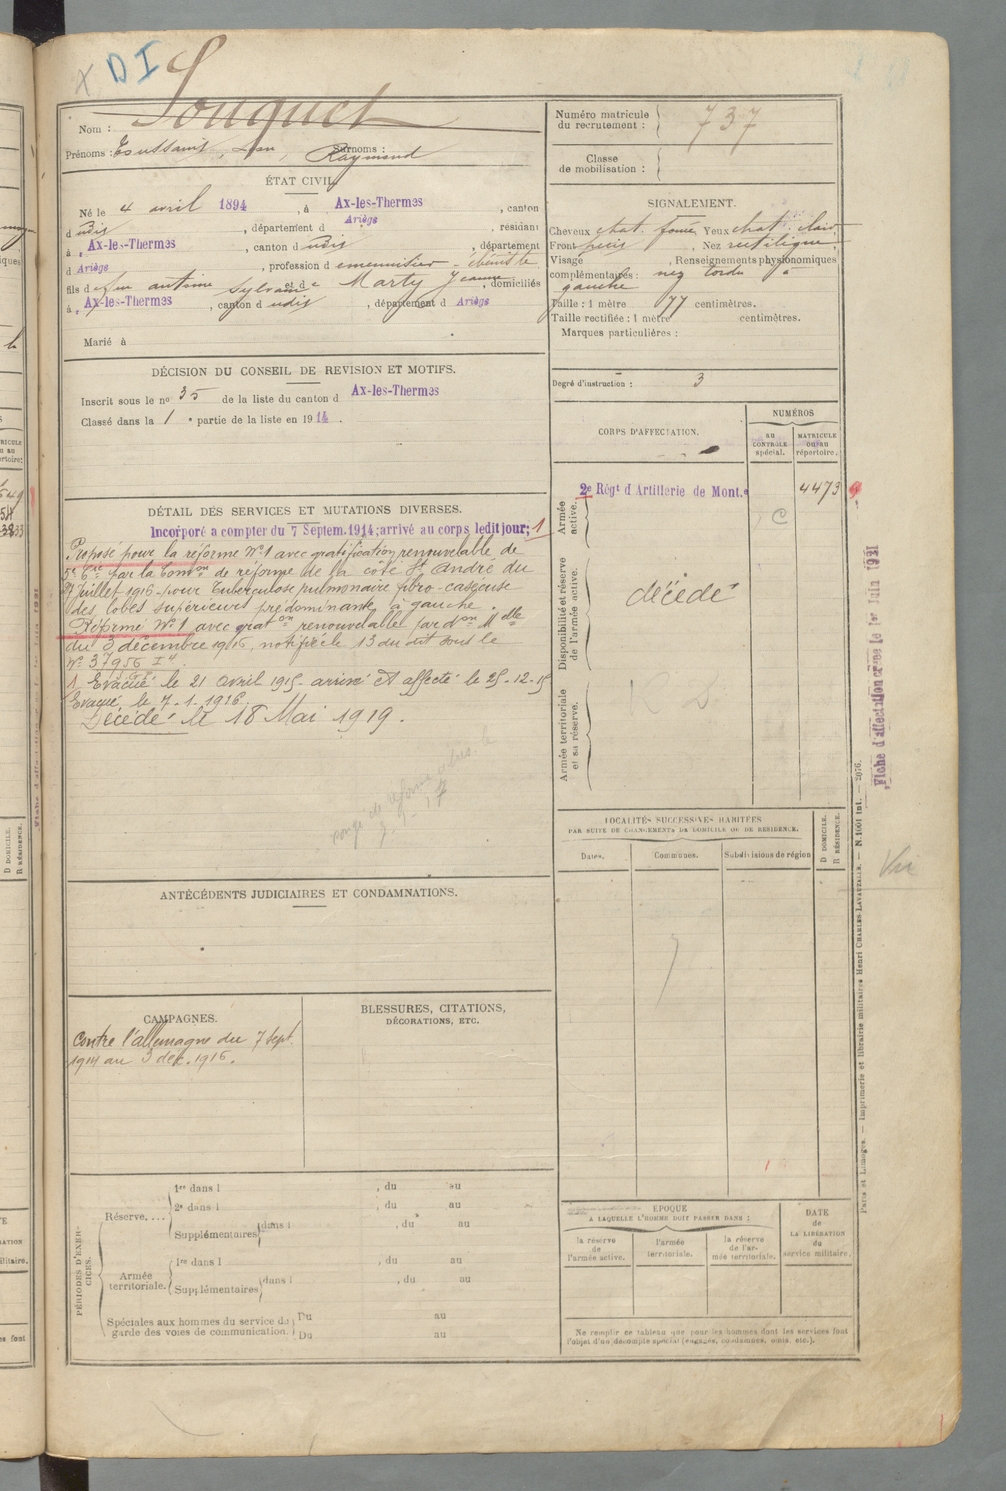 X DI
Nom : Souquet
Prénoms : Toussaint, Jean, Surnoms : Raymond
ÉTAT CIVIL
Né le 4 avril 1894, à Ax-les-Thermes, canton
d udis, département d Ariège, résidant
à Ax-les-Thermes, canton d udis, département
d Ariège, profession d emenuisier - ébéniste
fils d efeu antoine Sylvain et de Marty Jeanne, domiciliés
à Ax-les-Thermes, canton d udis, département d Ariège
Marié à
DÉCISION DU CONSEIL DE REVISION ET MOTIFS.
Inscrit sous le no 35 de la liste du canton d Ax-les-Thermes
Classé dans la 1 e partie de la liste en 1914.
DÉTAIL DES SERVICES ET MUTATIONS DIVERSES.
Incorporé a compter du 7 Septem. 1914; arrivé au corps ledit jour; 1
Proposé pour la réforme N°1 avec gratification renouvelable de
5e Cie par la Comon de réforme de la côte St André du
Juillet 1916 pour Tuberculose pulmonaire fibro-caséeuse
des lobes supérieurs prédominante à gauche.
Réformé N°1 avec graton renouvelable par don Mlle
du 3 décembre 1916, notifiée le 13 du dit sous le
N° 37956 I
1 Evacué le 21 avril 1915 arrivé et affecté le 25-12-15
Evacué le 7-1-1916.
Décédé le 18 Mai 1919.
ANTÉCÉDENTS JUDICIAIRES ET CONDAMNATIONS.
CAMPAGNES.
Contre l'allemagne du 7 Sept.
1914 au 3 déc. 1916.
BLESSURES, CITATIONS,
DÉCORATIONS, ETC.
PÉRIODES D'EXERCICES.
Réserve....
1re dans l , du au
2e dans l , du au
Supplémentaires dans l , du au
Armée territoriale.
1re dans l , du au
Supplémentaires dans l , du au
Spéciales aux hommes du service de garde des voies de communication.
Du au
Du au
Numéro matricule du recrutement : 737
Classe de mobilisation :
SIGNALEMENT.
Cheveux chat. foncé Yeux chat. clair
Front précis, Nez rectiligne
Visage , Renseignements physionomiques
complémentaires : nez tordu à
gauche
Taille : 1 mètre 77 centimètres.
Taille rectifiée : 1 mètre centimètres.
Marques particulières :
Degré d'instruction : 3
CORPS D'AFFECTATION.
NUMÉROS
AU CONTRÔLE spécial.
MATRICULE ou au répertoire.
Armée active.
2e Régt d Artillerie de Mont.e
4473
C
Disponibilité et réserve de l'armée active.
décédé
Armée territoriale et sa réserve.
LOCALITÉS SUCCESSIVES HABITÉES
PAR SUITE DE CHANGEMENTS DE DOMICILE OU DE RÉSIDENCE.
Dates.
Communes.
Subdivisions de région
D DOMICILE.
R RÉSIDENCE.
EPOQUE
A LAQUELLE L'HOMME DOIT PASSER DANS :
la réserve de l'armée active.
l'armée territoriale.
la réserve de l'armée territoriale.
DATE de LA LIBÉRATION du service militaire.
Ne remplir ce tableau que pour les hommes dont les services font
l'objet d'un décompte spécial (engagés, condamnés, omis, etc.).
Fiche d'affectation créée le 1er Juin 1931
Paris et Limoges. — Imprimerie et librairie militaires Henri CHARLES-LAVAUZELLE. — N. 1001 int. — 2076.
Vu